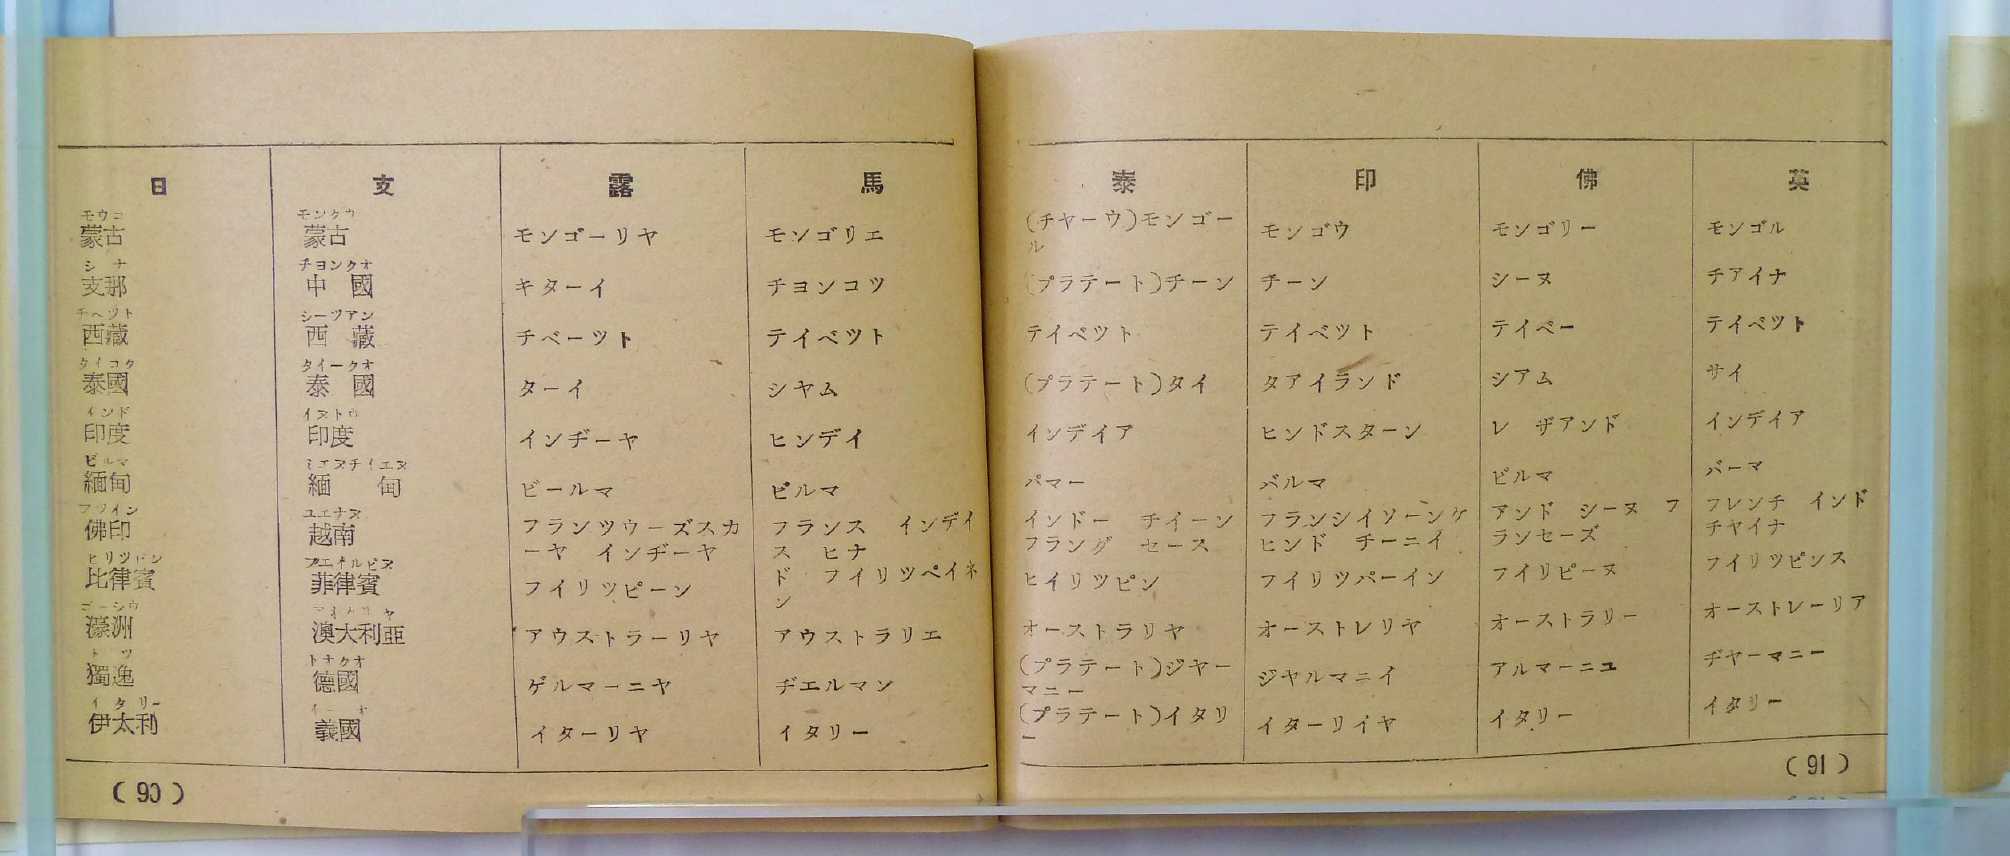 日 支 露 馬 泰 印 佛 英
モウコ モンクウ
蒙古 蒙古 モンゴーリヤ モンゴリエ (チヤーウ)モンゴー モンゴウ モンゴリー モンゴル
ル
シナ チヨンクオ
支那 中國 キターイ チヨンコツ (プラテート)チーン チーン シーヌ チアイナ
チベツト シーツアン
西藏 西藏 チベーツト テイベツト テイベツト テイベツト テイベー テイベツト
タイコク タイークオ
泰國 泰國 ターイ シヤム (プラテート)タイ タアイランド シアム サイ
インド イヌトウ
印度 印度 インヂーヤ ヒンデイ インデイア ヒンドスターン レ ザアンド インデイア
ビルマ ミエヌチイエヌ
緬甸 緬甸 ビールマ ビルマ パマー バルマ ビルマ バーマ
フツイン ユエナヌ
佛印 越南 フランツウーズスカ フランス インデイ インドー チイーン フランシイソーンケ アンド シーヌ フ フレンチ インド
ーヤ インヂーヤ ス ヒナ フラング セース ヒンド チーニイ ランセーズ チヤイナ
ヒリツピン フエイルピヌ
比律賓 菲律賓 フイリツピーン ド フイリツペイネ ヒイリツピン フイリツパーイン フイリピーヌ フイリツピンス
ン
ゴーシウ
濠洲 澳大利亜 アウストラーリヤ アウストラリエ オーストラリヤ オーストレリヤ オーストラリー オーストレーリア
ドツ トナクオ
獨逸 德國 ゲルマーニヤ ヂエルマン (プラテート)ジヤー ジヤルマニイ アルマーニユ ヂヤーマニー
マニー
イタリー
伊太利 義國 イターリヤ イタリー (プラテート)イタリ イターリイヤ イタリー イタリー
ー
(90) (91)